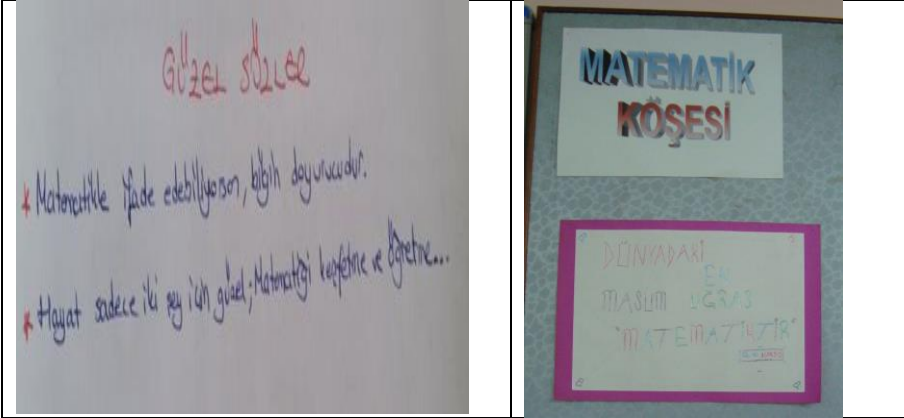 GÜZEL SÖZLER
* Matematikle ifade edebiliyorsan, bilgin doyurucudur.
* Hayat sadece iki şey için güzel; Matematiği keşfetme ve öğretme...
MATEMATİK
KÖŞESİ
DÜNYADAKİ
EN
MASUM UĞRAŞ
"MATEMATİKTİR"